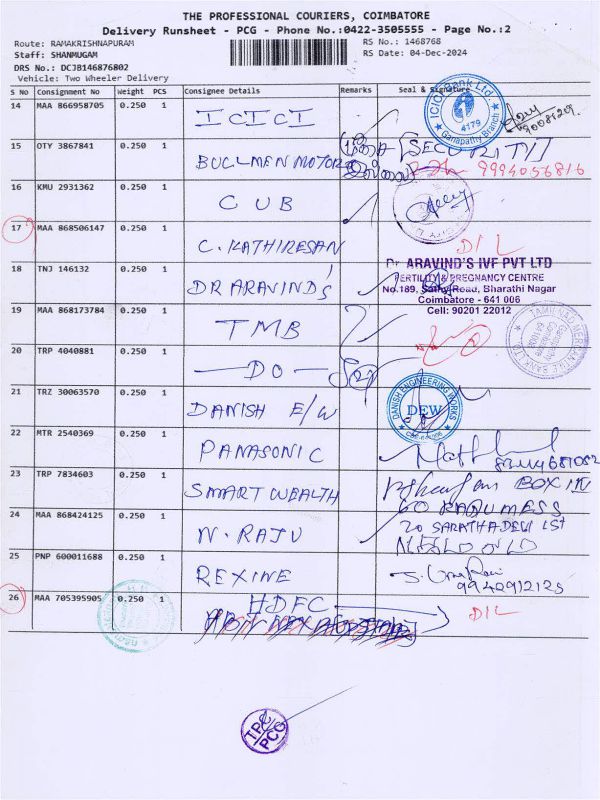 THE PROFESSIONAL COURIERS, COIMBATORE
Delivery Runsheet - PCG - Phone No.:0422-3505555 - Page No.:2
Route: RAMAKRISHNAPURAM
RS No.: 1468768
Staff: SHANMUGAM
RS Date: 04-Dec-2024
DRS No.: DCJB146876802
Vehicle: Two Wheeler Delivery
S No Consignment No Weight PCS Consignee Details Remarks Seal & Signature
14 MAA 866958705 0.250 1 ICICI
ICICI Bank Ltd
4179
Ganapathy Branch
15 OTY 3867841 0.250 1 BUCLMEN MOTOR [SECURITY]
9994056816
16 KMU 2931362 0.250 1 CUB
17 MAA 868506147 0.250 1 C. KATHIRESAN D/L
18 TNJ 146132 0.250 1 DR ARAVIND'S
Dr. ARAVIND'S IVF PVT LTD
FERTILITY & PREGNANCY CENTRE
No.189, Sathy Road, Bharathi Nagar
Coimbatore - 641 006
Cell: 90201 22012
19 MAA 868173784 0.250 1 TMB
TAMILNAD MERCANTILE BANK LTD
20 TRP 4040881 0.250 1 — DO —
21 TRZ 30063570 0.250 1 DANISH E/W
DANISH ENGINEERING WORKS
DEW
22 MTR 2540369 0.250 1 PANASONIC
23 TRP 7834603 0.250 1 SMART WEALTH BOX IN
24 MAA 868424125 0.250 1 N. RAJU
25 PNP 600011688 0.250 1 REXINE
9942912125
26 MAA 705395905 0.250 1 HDFC D/L
TPC
PCG